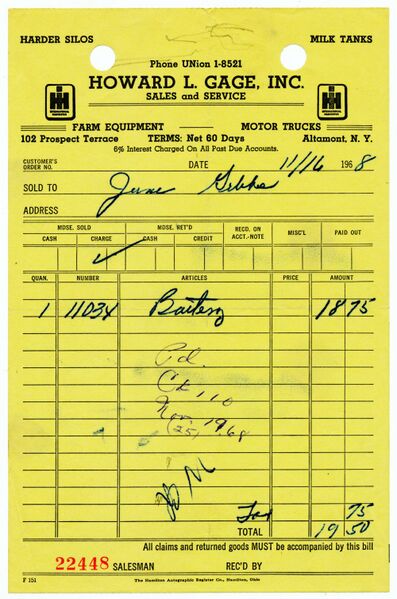 HARDER SILOS MILK TANKS
Phone UNion 1-8521
HOWARD L. GAGE, INC.
SALES and SERVICE
IH INTERNATIONAL HARVESTER
IH INTERNATIONAL HARVESTER
FARM EQUIPMENT MOTOR TRUCKS
102 Prospect Terrace TERMS: Net 60 Days Altamont, N. Y.
6% Interest Charged On All Past Due Accounts.
CUSTOMER'S ORDER NO. DATE 11/16 1968
SOLD TO June
ADDRESS
MDSE. SOLD MDSE. RET'D RECD. ON ACCT.-NOTE MISC'L PAID OUT
CASH CHARGE CASH CREDIT
✓
QUAN. NUMBER ARTICLES PRICE AMOUNT
1 11034 Battery 18 75
Pd.
Ck 110
Nov. 1968
(25)
Tax 75
TOTAL 19 50
All claims and returned goods MUST be accompanied by this bill
22448 SALESMAN REC'D BY
F 151 The Hamilton Autographic Register Co., Hamilton, Ohio